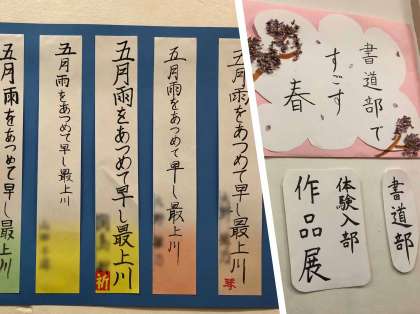 五月雨をあつめて早し最上川
五月雨をあつめて早し最上川
五月雨をあつめて早し最上川
五月雨をあつめて早し最上川
五月雨をあつめて早し最上川
書道部で
すごす
春
書道部
体験入部
作品展